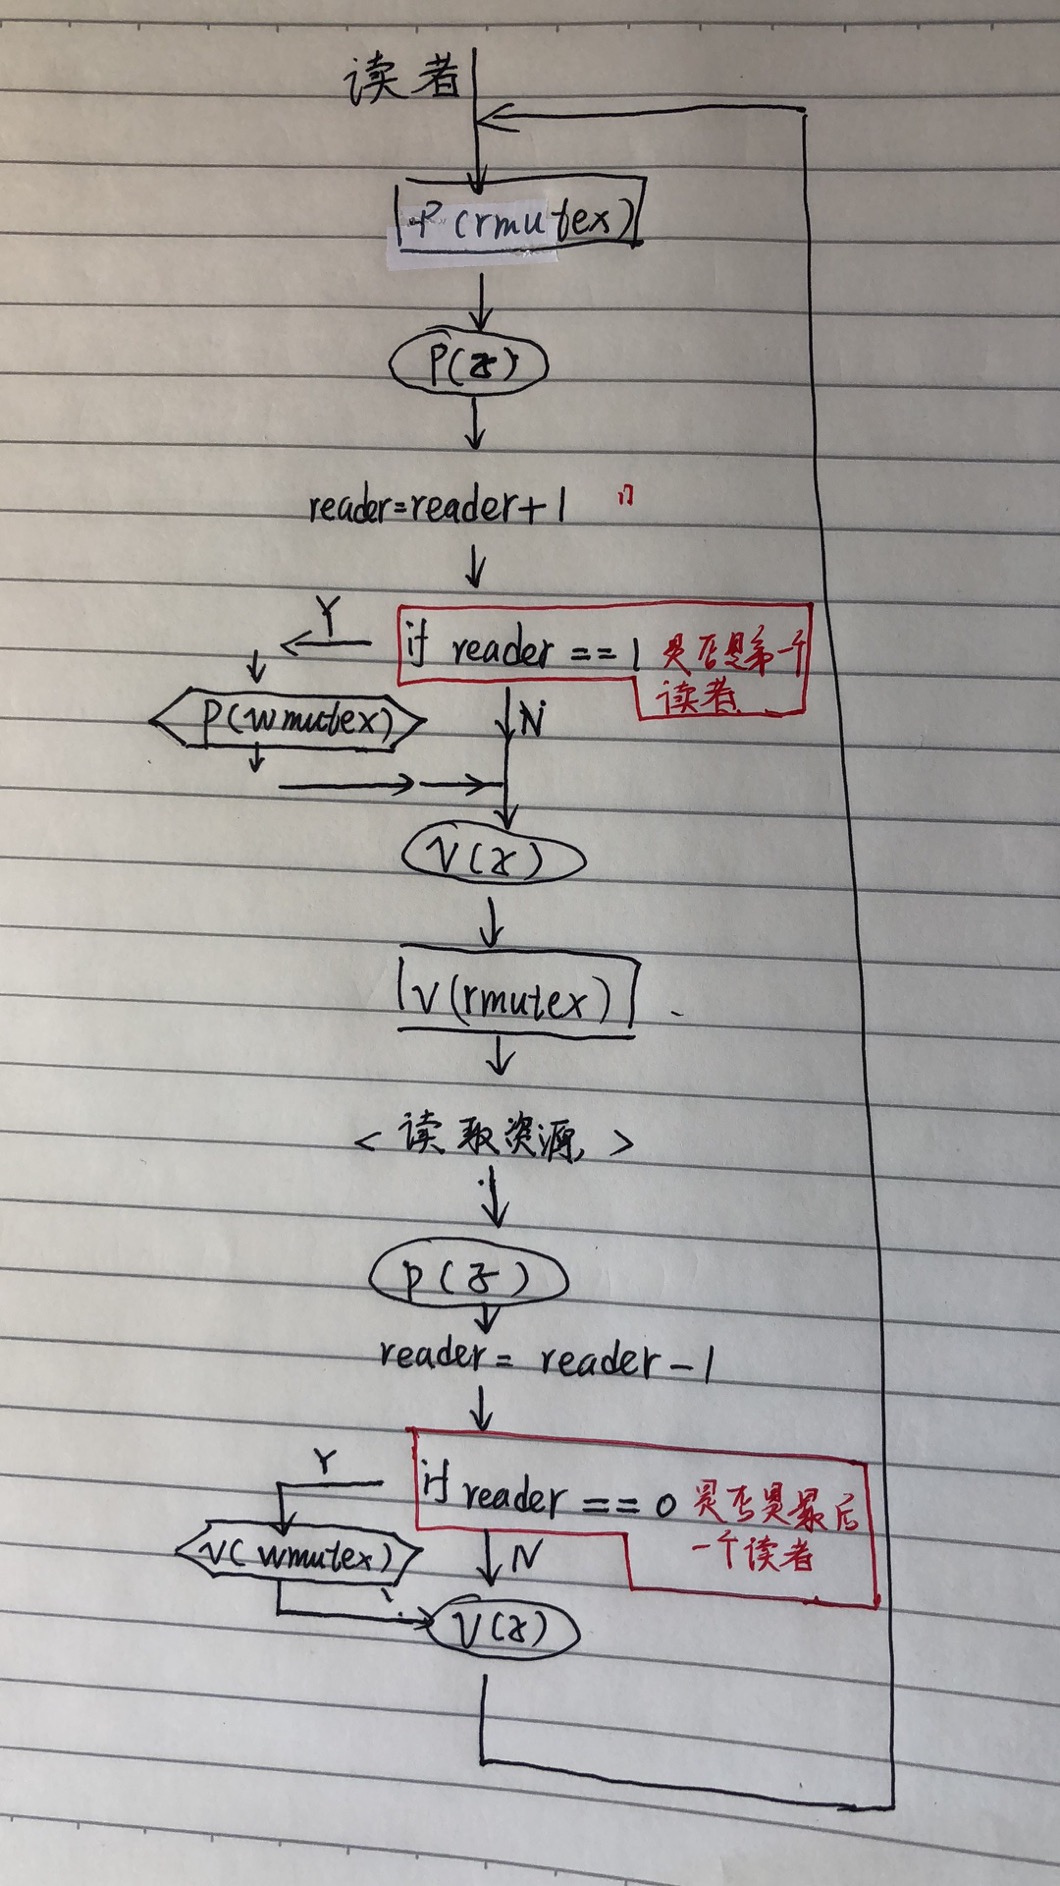 读者
P(rmutex)
P(z)
reader=reader+1
Y
if reader == 1 是否是第一个
读者
P(wmutex)
N
V(z)
V(rmutex)
<读取资源>
P(z)
reader= reader-1
Y
if reader == 0 是否是最后
一个读者
V(wmutex)
N
V(z)